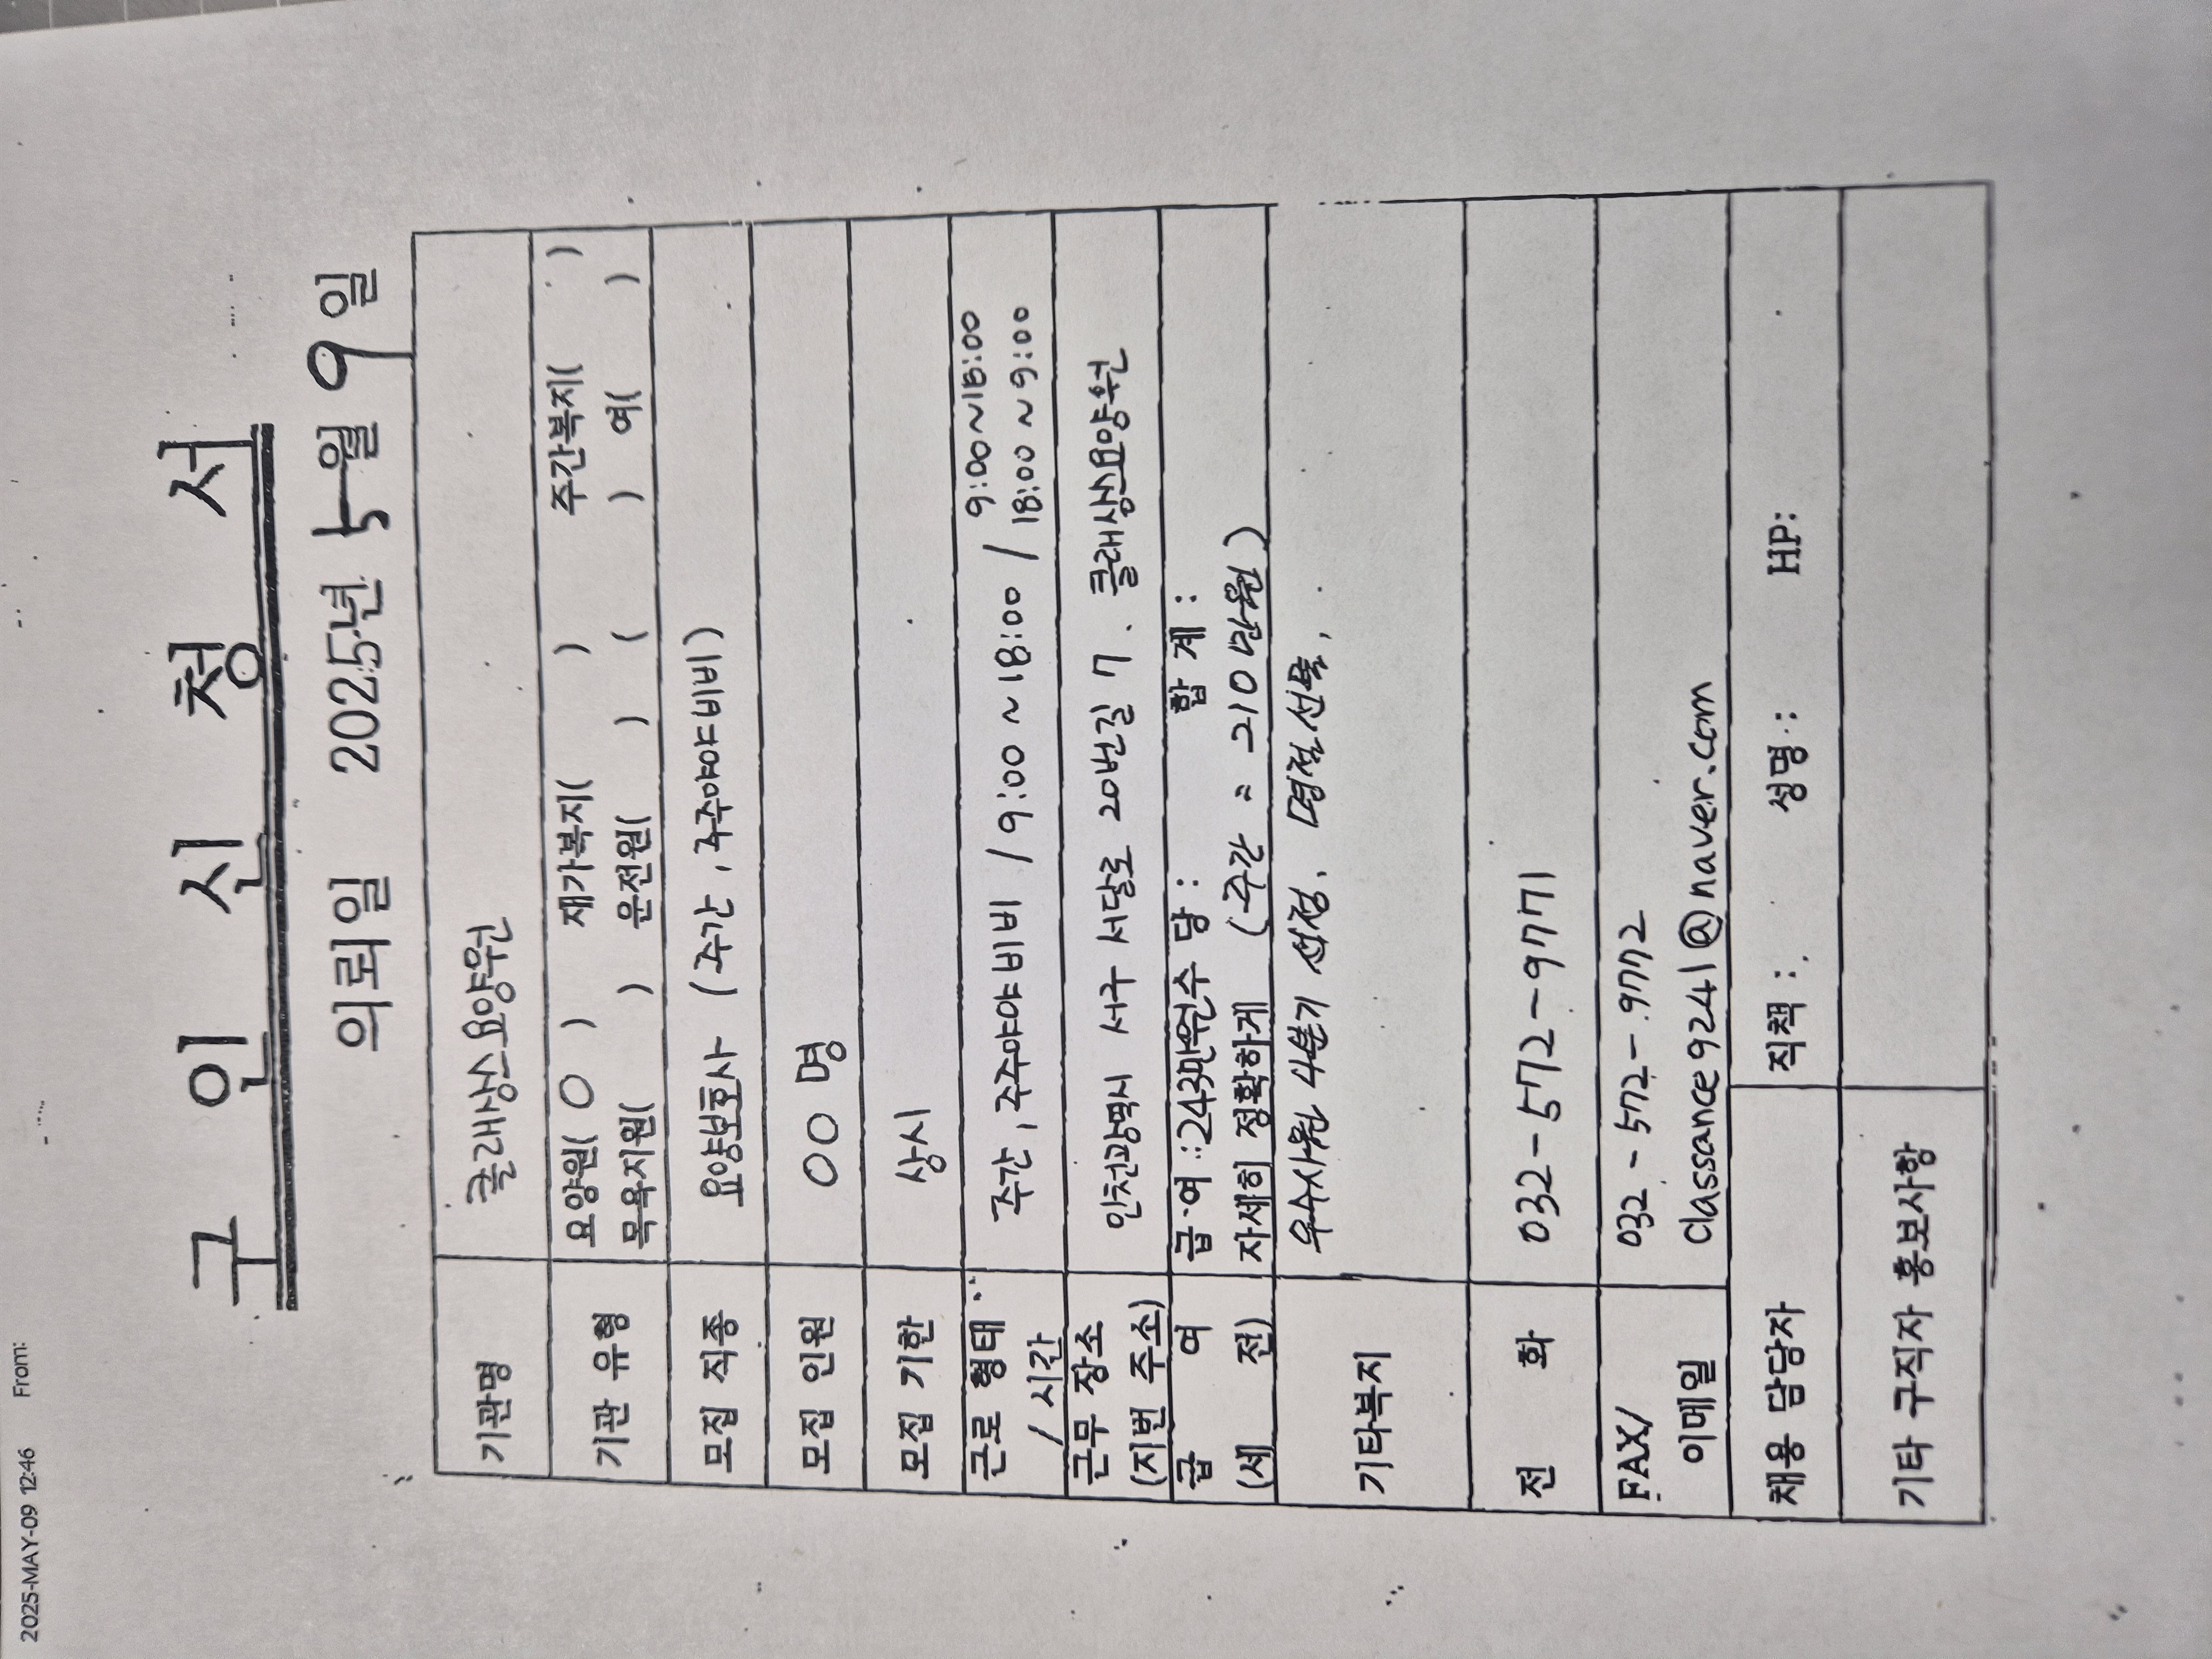 2025-MAY-09 12:46 From:
구 인 신 청 서
의뢰일 2025년 5월 9일
기관명 클래상스요양원
기관 유형 요양원( O ) 재가복지( ) 주간복지( )
목욕지원( ) 운전원( ) ( ) 여( )
모집 직종 요양보호사 (주간, 주주야야비비)
모집 인원 00 명
모집 기한 상시
근로 형태 / 시간 주간, 주주야야비비 / 9:00 ~ 18:00 / 9:00 ~ 18:00
18:00 ~ 9:00
근무 장소 (지번 주소) 인천광역시 서구 서달로 20번길 7. 클래상스요양원
급 여 급 여 : 243만원 수 당 : 합 계 :
(세 전) 자세히 정확하게 (주간 = 210만원)
기타복지 우수사원 4분기 선정. 명절선물.
전 화 032-572-9771
FAX/ 032-572-9772
이메일 classance9241@naver.com
채용 담당자 직책 : 성명 : HP:
기타 구직자 홍보사항